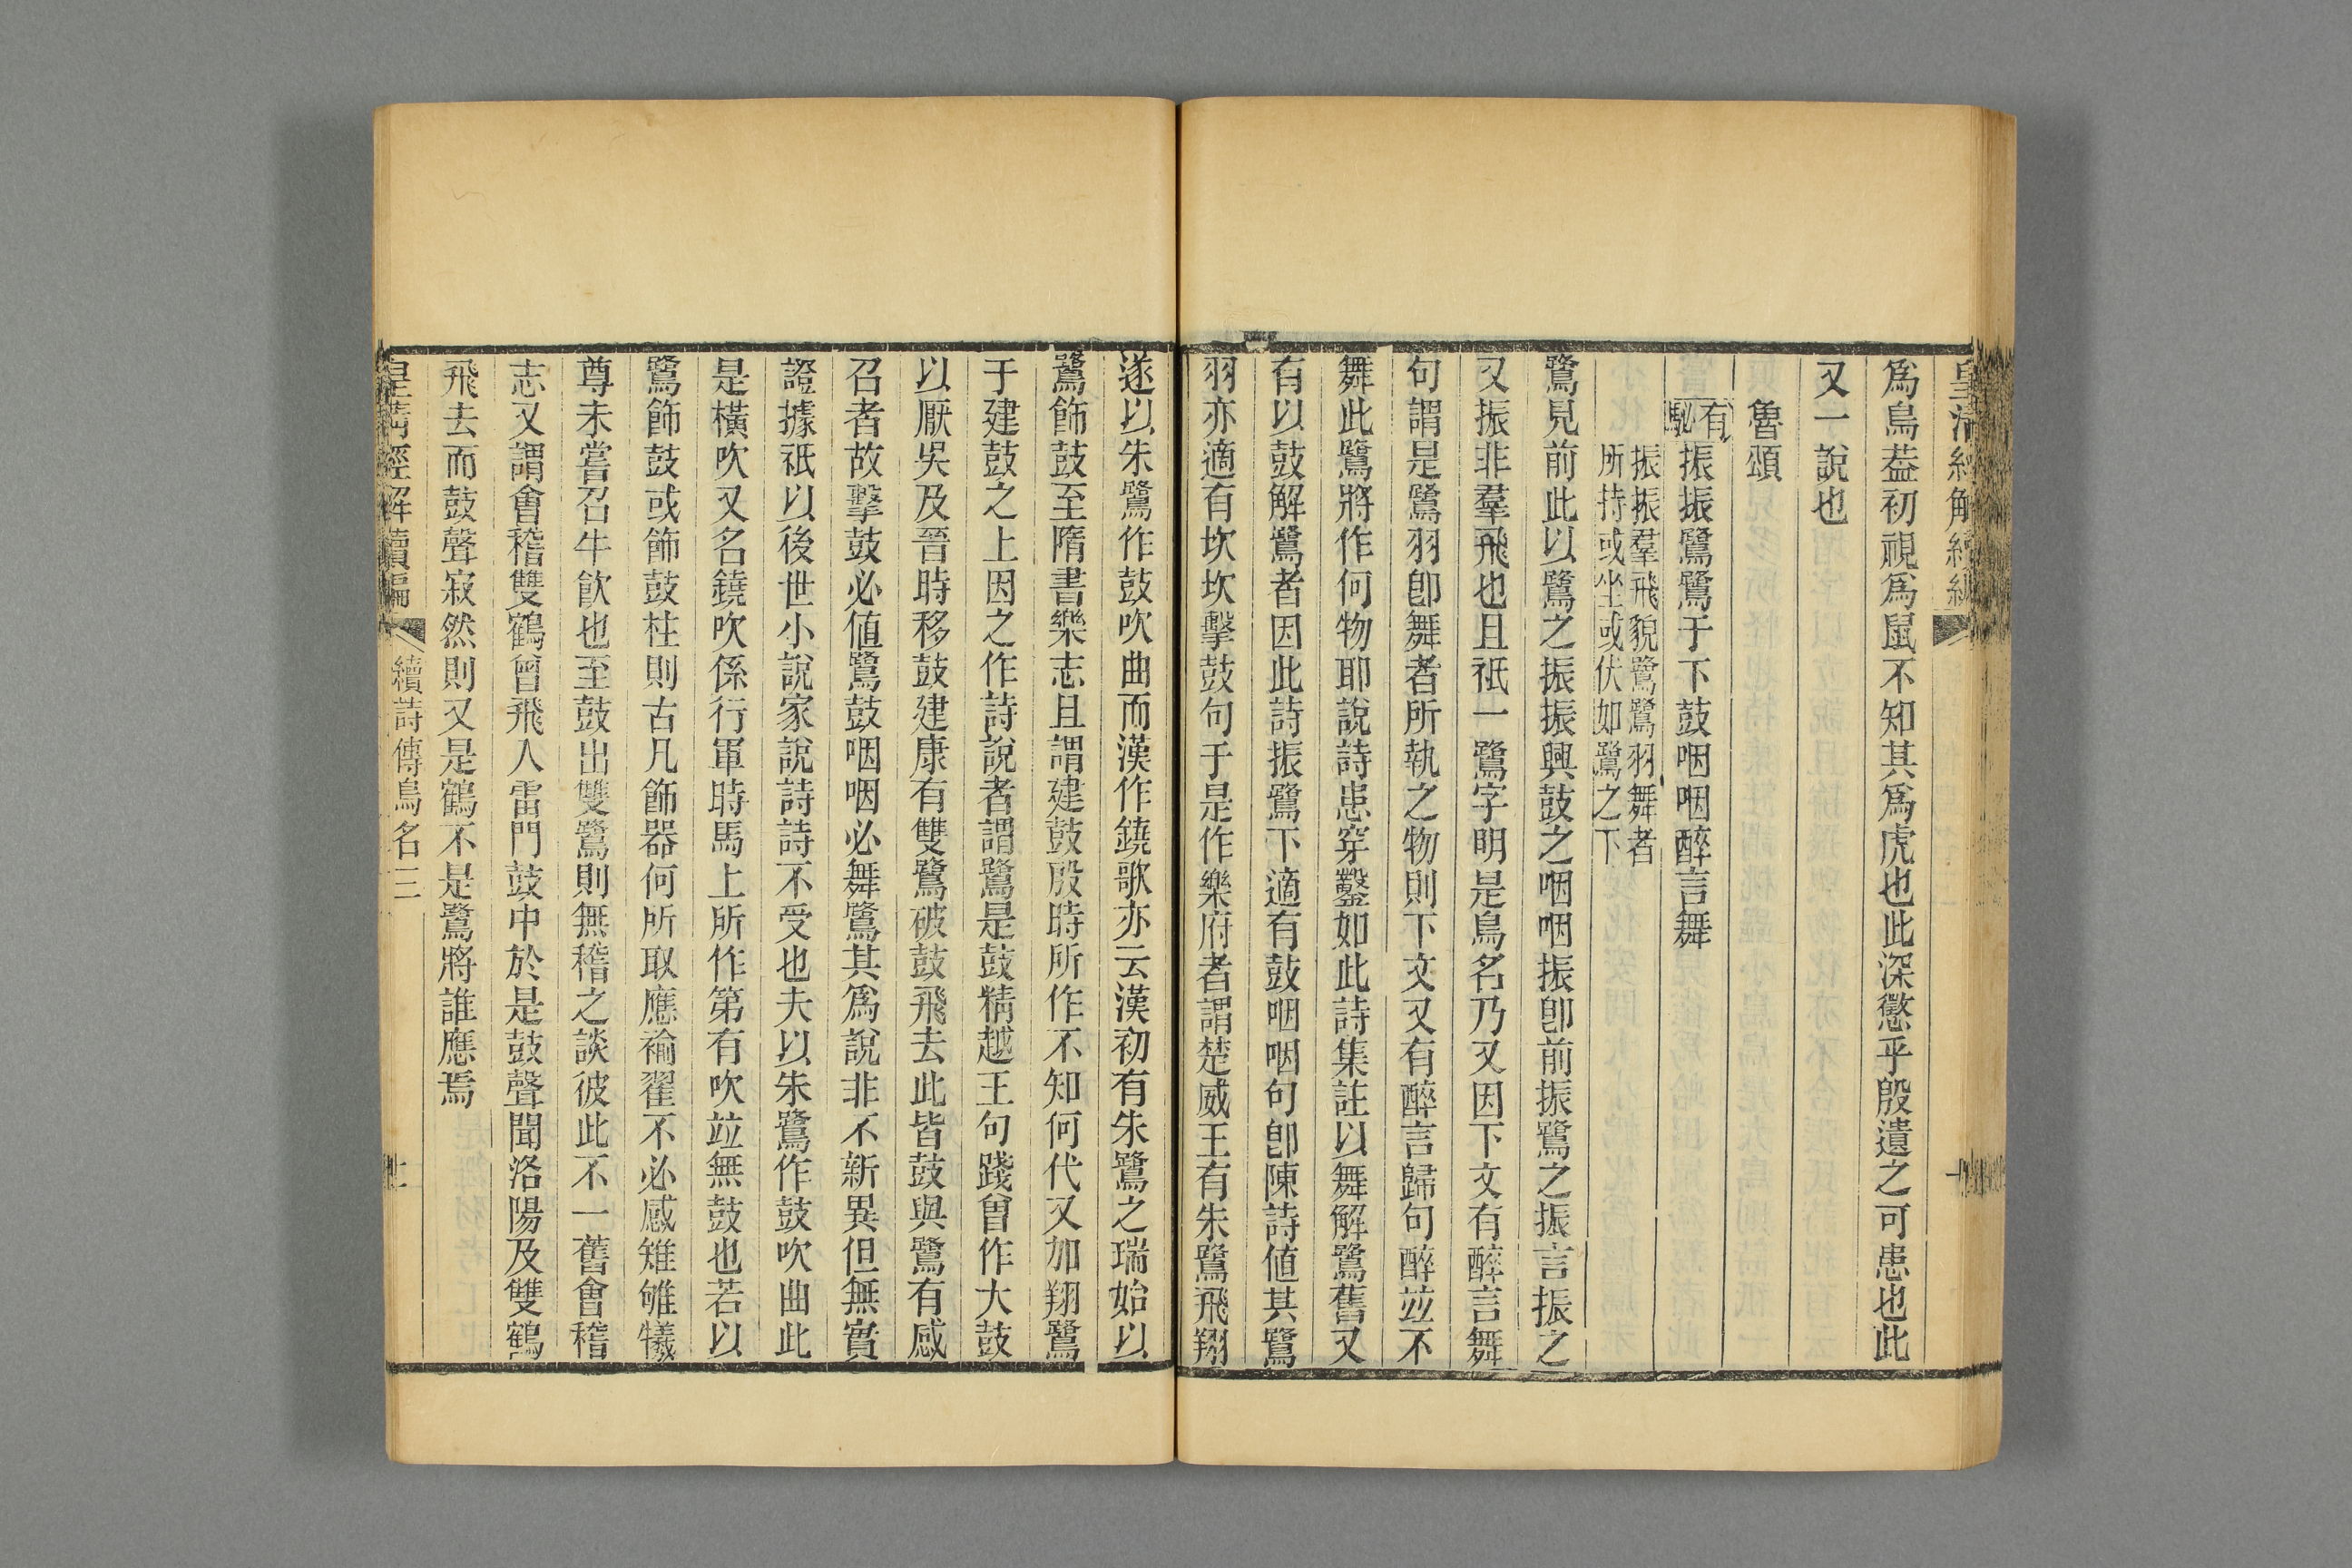 爲鳥葢初視爲鼠不知其爲虎也此深懲乎殷遺之可患也此
又一說也
魯頌
有駜振振鷺鷺于下鼓咽咽醉言舞
振振羣飛貌鷺鷺羽舞者
所持或坐或伏如鷺之下
鷺見前此以鷺之振振興鼓之咽咽振卽前振鷺之振言振之
又振非羣飛也且祇一鷺字明是鳥名乃又因下文有醉言舞
句謂是鷺羽卽舞者所執之物則下文又有醉言歸句醉竝不
舞此鷺將作何物耶說詩患穿鑿如此詩集註以舞解鷺舊又
有以鼓解鷺者因此詩振鷺下適有鼓咽咽句卽陳詩値其鷺
羽亦適有坎坎擊鼓句于是作樂府者謂楚威王有朱鷺飛翔
遂以朱鷺作鼓吹曲而漢作鐃歌亦云漢初有朱鷺之瑞始以
鷺飾鼓至隋書樂志且謂建鼓殷時所作不知何代又加翔鷺
于建鼓之上因之作詩說者謂鷺是鼓精越王句踐曾作大鼓
以厭吳及晉時移鼓建康有雙鷺破鼓飛去此皆鼓與鷺有感
召者故擊鼓必値鷺鼓咽咽必舞鷺其爲說非不新異但無實
證據祇以後世小說家說詩詩不受也夫以朱鷺作鼓吹曲此
是橫吹又名鐃吹係行軍時馬上所作第有吹竝無鼓也若以
鷺飾鼓或飾鼓柱則古凡飾器何所取應褕翟不必感雉雊犧
尊未嘗召牛飮也至鼓出雙鷺則無稽之談彼此不一舊會稽
志又謂會稽雙鶴曾飛入雷門鼓中於是鼓聲聞洛陽及雙鶴
飛去而鼓聲寂然則又是鶴不是鷺將誰應焉
皇淸經解續編
續詩傳鳥名三